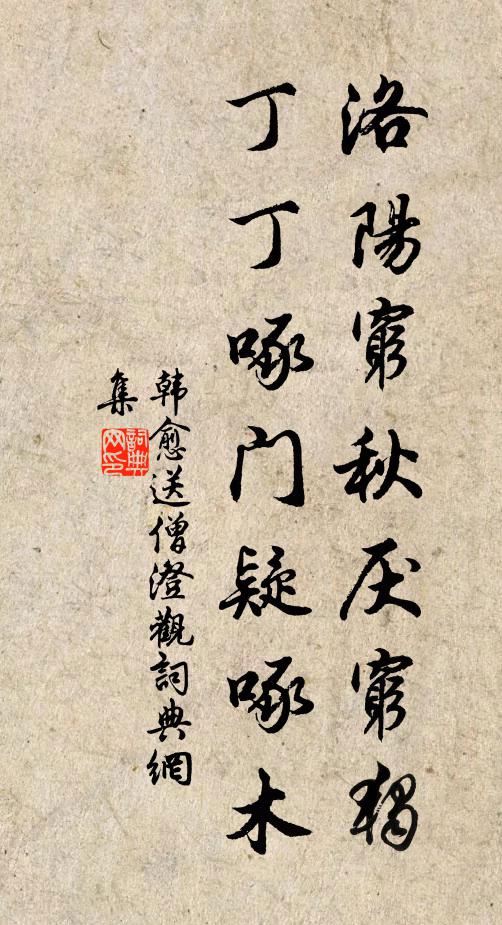 洛陽窮秋厌窮獨
丁丁啄门疑啄木
韩愈送僧澄觀詞典網
集
詞典
网印